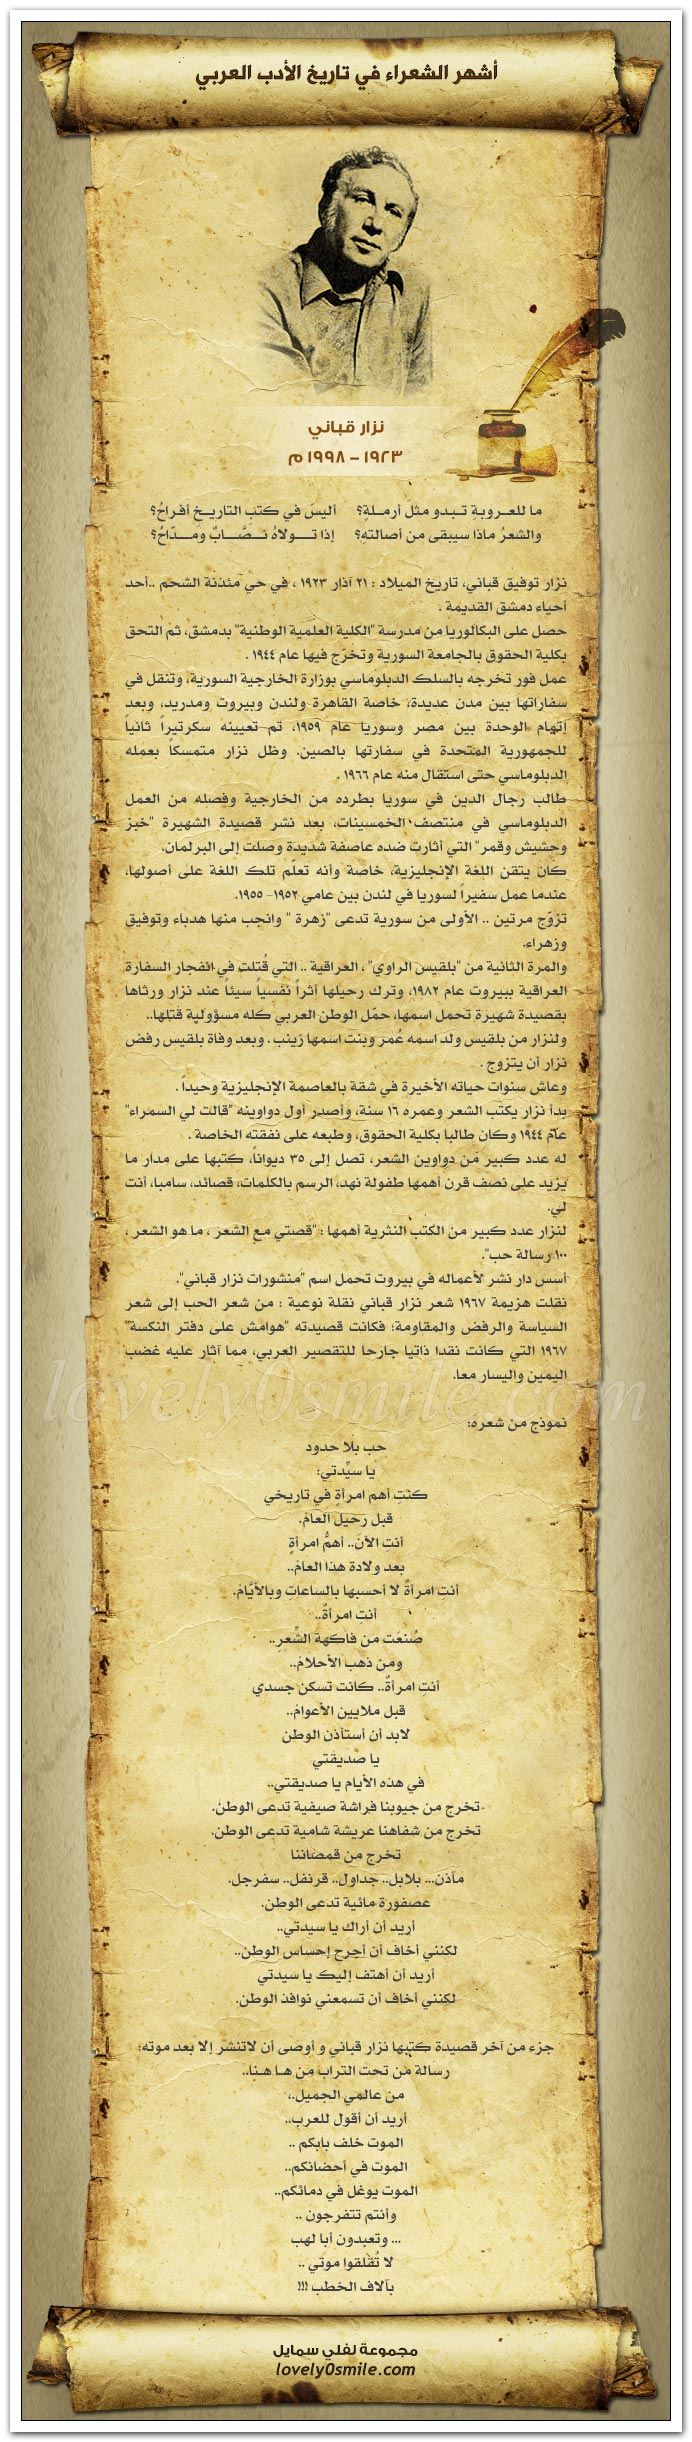 أشهر الشعراء في تاريخ الأدب العربي
نزار قباني
١٩٢٣ - ١٩٩٨ م
ما للعـروبةِ تـبدو مثل أرمـلةٍ؟ أليسَ في كتبِ التاريـخِ أفراحُ؟
والشعرُ ماذا سيبقى من أصالتهِ؟ إذا تـــولاهُ نـــصَّــابٌ ومـــدّاحُ؟
نزار توفيق قباني، تاريخ الميلاد : ٢١ آذار ١٩٢٣ ، في حي مئذنة الشحم ..أحد
أحياء دمشق القديمة .
حصل على البكالوريا من مدرسة "الكلية العلمية الوطنية" بدمشق، ثم التحق
بكلية الحقوق بالجامعة السورية وتخرّج فيها عام ١٩٤٤ .
عمل فور تخرجه بالسلك الدبلوماسي بوزارة الخارجية السورية، وتنقل في
سفاراتها بين مدن عديدة، خاصة القاهرة ولندن وبيروت ومدريد، وبعد
إتمام الوحدة بين مصر وسوريا عام ١٩٥٩، تم تعيينه سكرتيراً ثانياً
للجمهورية المتحدة في سفارتها بالصين. وظل نزار متمسكاً بعمله
الدبلوماسي حتى استقال منه عام ١٩٦٦ .
طالب رجال الدين في سوريا بطرده من الخارجية وفصله من العمل
الدبلوماسي في منتصف الخمسينات، بعد نشر قصيدة الشهيرة "خبز
وحشيش وقمر" التي أثارت ضده عاصفة شديدة وصلت إلى البرلمان.
كان يتقن اللغة الإنجليزية، خاصة وأنه تعلّم تلك اللغة على أصولها،
عندما عمل سفيراً لسوريا في لندن بين عامي ١٩٥٢- ١٩٥٥.
تزوّج مرتين .. الأولى من سورية تدعى "زهرة " وانجب منها هدباء وتوفيق
وزهراء.
والمرة الثانية من "بلقيس الراوي" ، العراقية .. التي قُتلت في انفجار السفارة
العراقية ببيروت عام ١٩٨٢، وترك رحيلها أثراً نفسياً سيئاً عند نزار ورثاها
بقصيدة شهيرة تحمل اسمها، حمّل الوطن العربي كله مسؤولية قتلها..
ولنزار من بلقيس ولد اسمه عُمر وبنت اسمها زينب . وبعد وفاة بلقيس رفض
نزار أن يتزوج .
وعاش سنوات حياته الأخيرة في شقة بالعاصمة الإنجليزية وحيداً .
بدأ نزار يكتب الشعر وعمره ١٦ سنة، وأصدر أول دواوينه "قالت لي السمراء"
عام ١٩٤٤ وكان طالبا بكلية الحقوق، وطبعه على نفقته الخاصة .
له عدد كبير من دواوين الشعر، تصل إلى ٣٥ ديواناً، كتبها على مدار ما
يزيد على نصف قرن أهمها طفولة نهد، الرسم بالكلمات، قصائد، سامبا، أنت
لي.
لنزار عدد كبير من الكتب النثرية أهمها : "قصتي مع الشعر ، ما هو الشعر ،
١٠٠ رسالة حب".
أسس دار نشر لأعماله في بيروت تحمل اسم "منشورات نزار قباني".
نقلت هزيمة ١٩٦٧ شعر نزار قباني نقلة نوعية : من شعر الحب إلى شعر
السياسة والرفض والمقاومة؛ فكانت قصيدته "هوامش على دفتر النكسة"
١٩٦٧ التي كانت نقدا ذاتيا جارحا للتقصير العربي، مما آثار عليه غضب
اليمين واليسار معا.
lovely0smile.com
نموذج من شعره:
حب بلا حدود
يا سيِّدتي:
كنتِ أهم امرأةٍ في تاريخي
قبل رحيل العامْ.
أنتِ الآنَ.. أهمُّ امرأةٍ
بعد ولادة هذا العامْ..
أنتِ امرأةٌ لا أحسبها بالساعاتِ وبالأيَّامْ.
أنتِ امرأةٌ..
صُنعَت من فاكهة الشِّعرِ..
ومن ذهب الأحلامْ..
أنتِ امرأةٌ.. كانت تسكن جسدي
قبل ملايين الأعوامْ..
لابد أن أستأذن الوطن
يا صديقتي
في هذه الأيام يا صديقتي..
تخرج من جيوبنا فراشة صيفية تدعى الوطن.
تخرج من شفاهنا عريشة شامية تدعى الوطن.
تخرج من قمصاننا
مآذن... بلابل.. جداول.. قرنفل.. سفرجل.
عصفورة مائية تدعى الوطن.
أريد أن أراك يا سيدتي..
لكنني أخاف أن أجرح إحساس الوطن..
أريد أن أهتف إليك يا سيدتي
لكنني أخاف أن تسمعني نوافذ الوطن.
جزء من آخر قصيدة كتبها نزار قباني و أوصى أن لاتنشر إلا بعد موته:
رسالة من تحت التراب من هـا هـنا..
من عالمي الجميل..،
أريد أن أقول للعرب..
الموت خلف بابكم ..
الموت في أحضانكم..
الموت يوغل في دمائكم..
وأنتم تتفرجون ..
... وتعبدون أبا لهب
لا تُقلقوا موتي ..
بآلاف الخطب !!!
مجموعة لفلي سمايل
lovely0smile.com